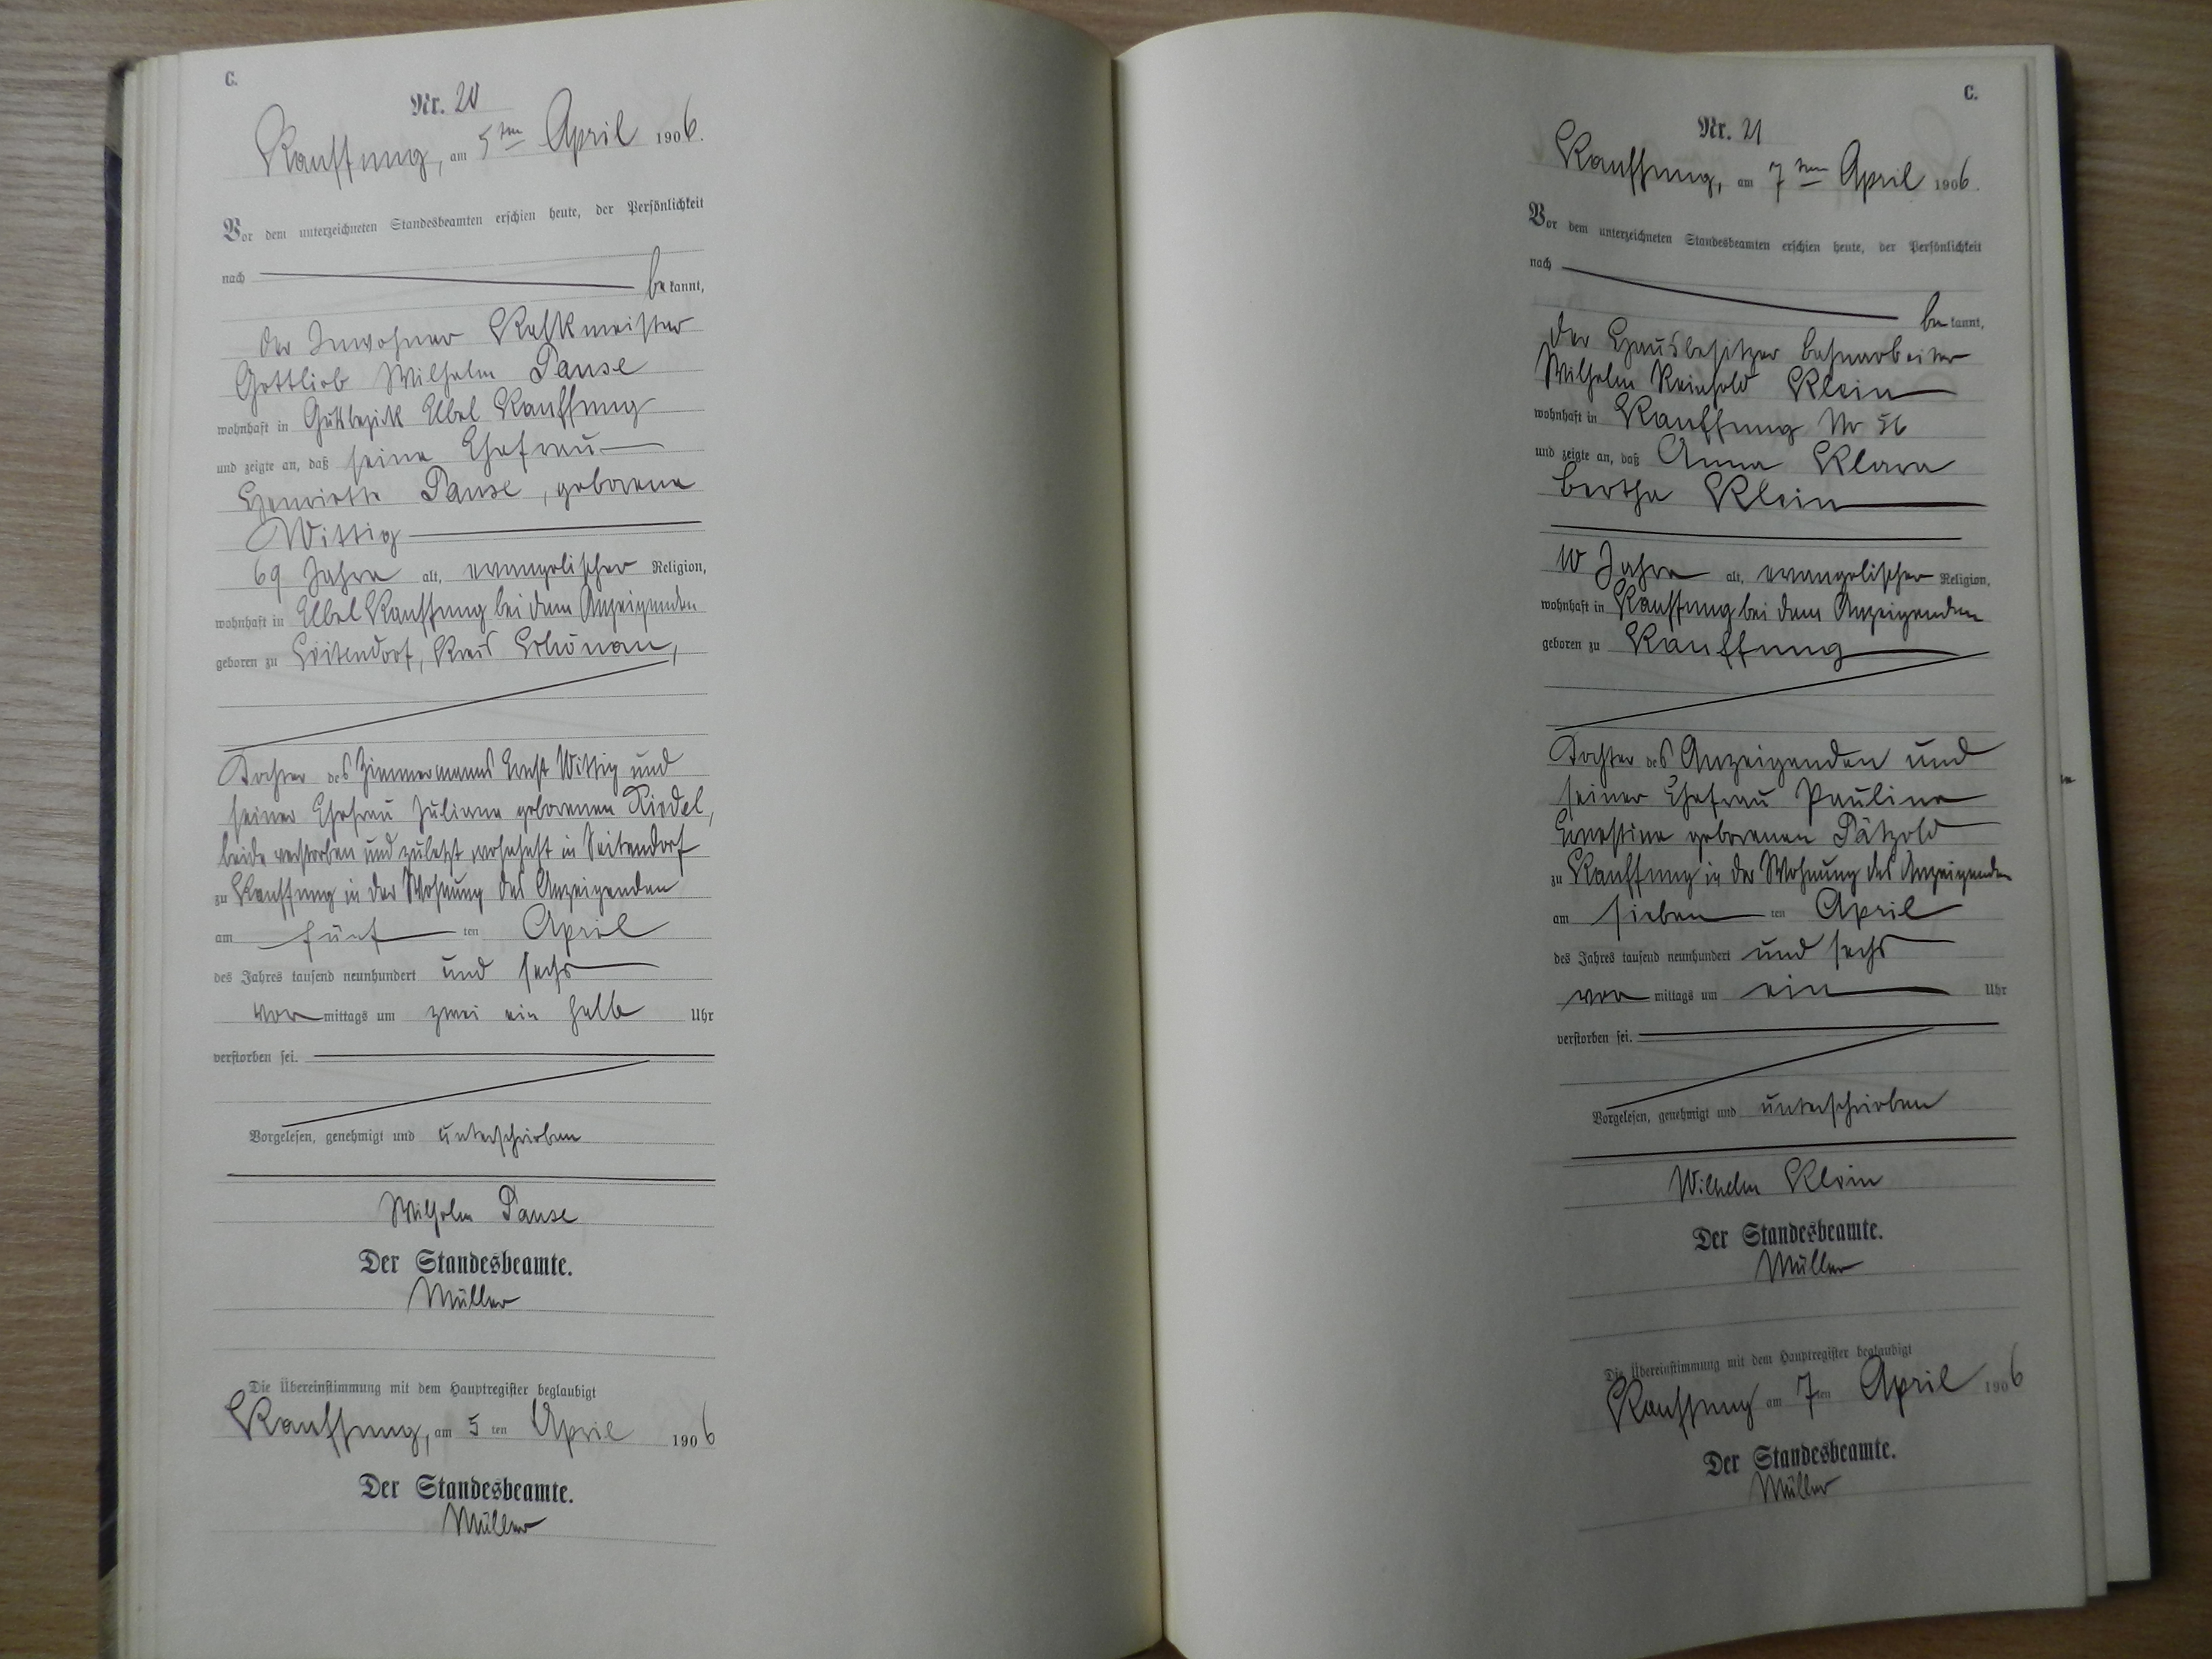 C.
Nr. 20
Kauffung, am 5ten April 1906.
Vor dem unterzeichneten Standesbeamten erschien heute, der Persönlichkeit
nach bekannt,
der Inwohner Kalkmeister
Gottlieb Wilhelm Pause
wohnhaft in Gutsbezirk Elbel Kauffung
und zeigte an, daß seine Ehefrau
Henriette Pause, geborene
Wittig
69 Jahre alt, evangelischer Religion,
wohnhaft in Elbel Kauffung bei dem Anzeigenden
geboren zu Seitendorf, Kreis Schönau,
Tochter des Zimmermanns Ernst Wittig und
seiner Ehefrau Juliane geborenen Riedel,
beide verstorben und zuletzt wohnhaft in Seitendorf
zu Kauffung in der Wohnung des Anzeigenden
am fünf ten April
des Jahres tausend neunhundert und sechs
vor mittags um zwei ein halb Uhr
verstorben sei.
Vorgelesen, genehmigt und unterschrieben
Wilhelm Pause
Der Standesbeamte.
Müller
Die Übereinstimmung mit dem Hauptregister beglaubigt
Kauffung, am 5 ten April 1906
Der Standesbeamte.
Müller
C.
Nr. 21
Kauffung, am 7ten April 1906.
Vor dem unterzeichneten Standesbeamten erschien heute, der Persönlichkeit
nach bekannt,
der Hausbesitzer Bahnarbeiter
Wilhelm Reinhold Klein
wohnhaft in Kauffung Nr 56
und zeigte an, daß Anna Klara
Bertha Klein
10 Jahre alt, evangelischer Religion,
wohnhaft in Kauffung bei dem Anzeigenden
geboren zu Kauffung
Tochter des Anzeigenden und
seiner Ehefrau Pauline
Ernestine geborenen Pätzold
zu Kauffung in der Wohnung des Anzeigenden
am sieben ten April
des Jahres tausend neunhundert und sechs
vor mittags um ein Uhr
verstorben sei.
Vorgelesen, genehmigt und unterschrieben
Wilhelm Klein
Der Standesbeamte.
Müller
Die Übereinstimmung mit dem Hauptregister beglaubigt
Kauffung am 7ten April 1906
Der Standesbeamte.
Müller